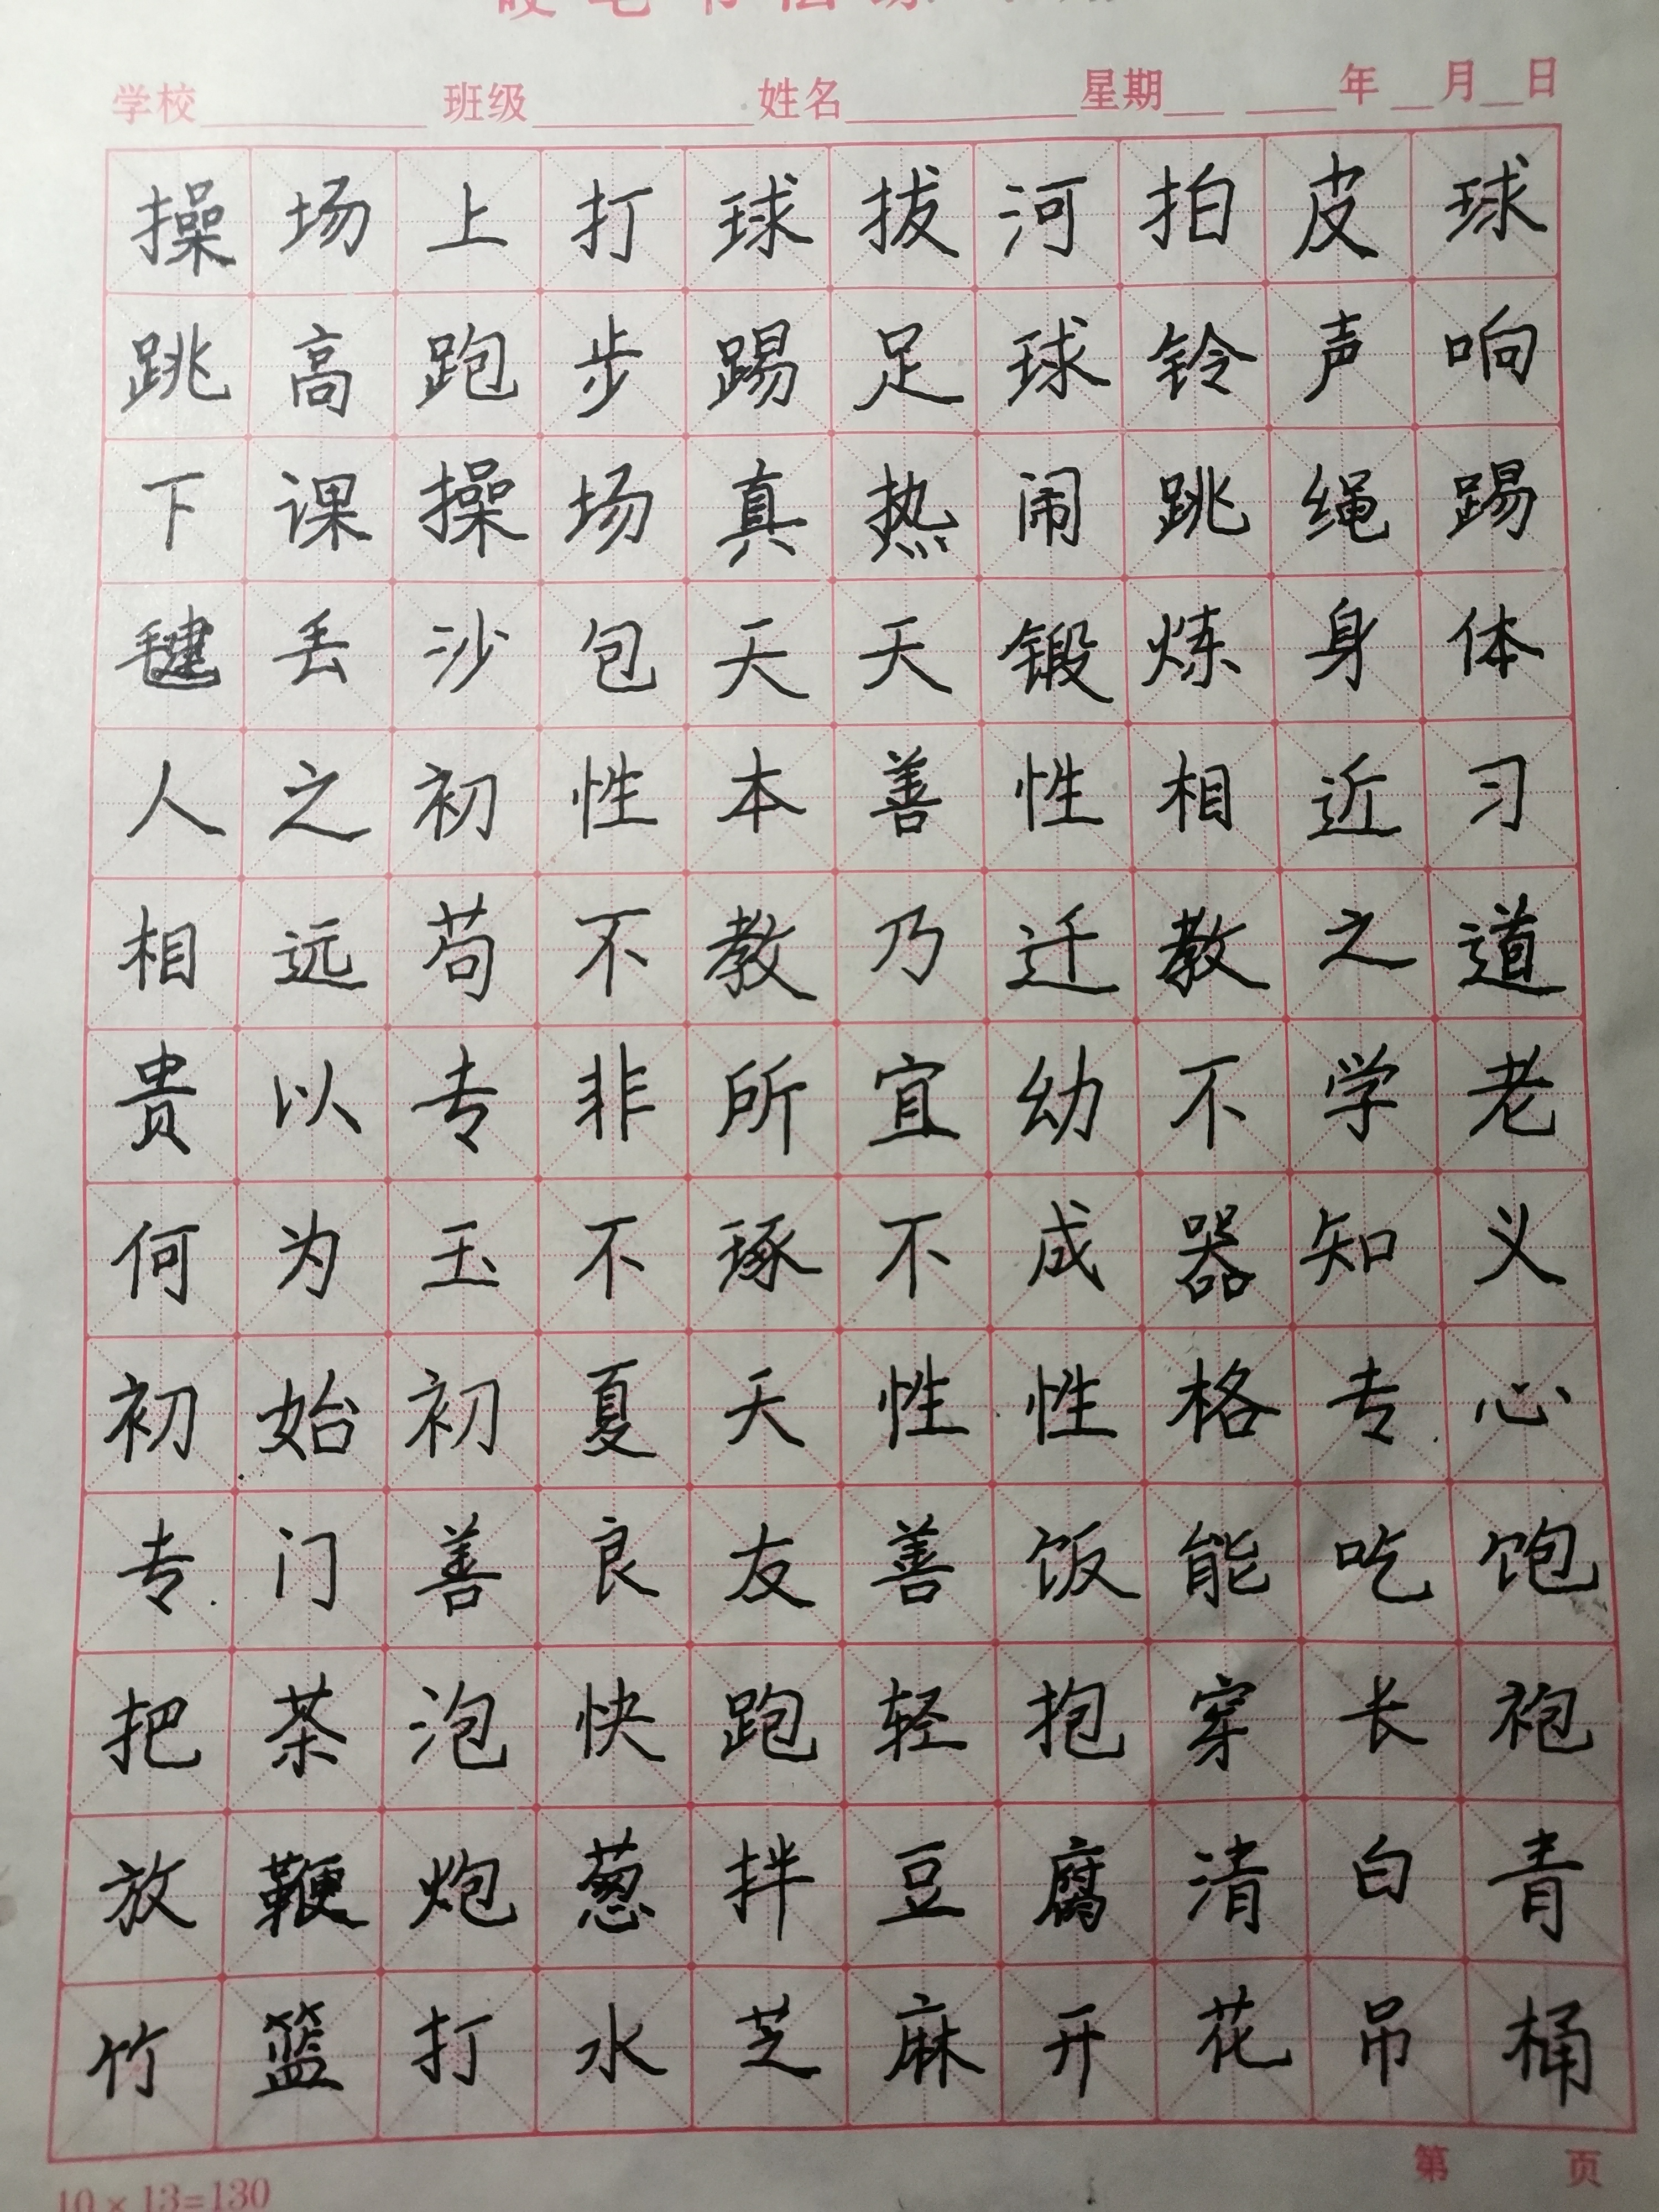 学校 班级 姓名 星期 年 月 日
操场上打球拔河拍皮球
跳高跑步踢足球铃声响
下课操场真热闹跳绳踢
毽丢沙包天天锻炼身体
人之初性本善性相近习
相远苟不教乃迁教之道
贵以专非所宜幼不学老
何为玉不琢不成器知义
初始初夏天性性格专心
专门善良友善饭能吃饱
把茶泡快跑轻抱穿长袍
放鞭炮葱拌豆腐清白青
竹篮打水芝麻开花吊桶
第 页
10×13=130